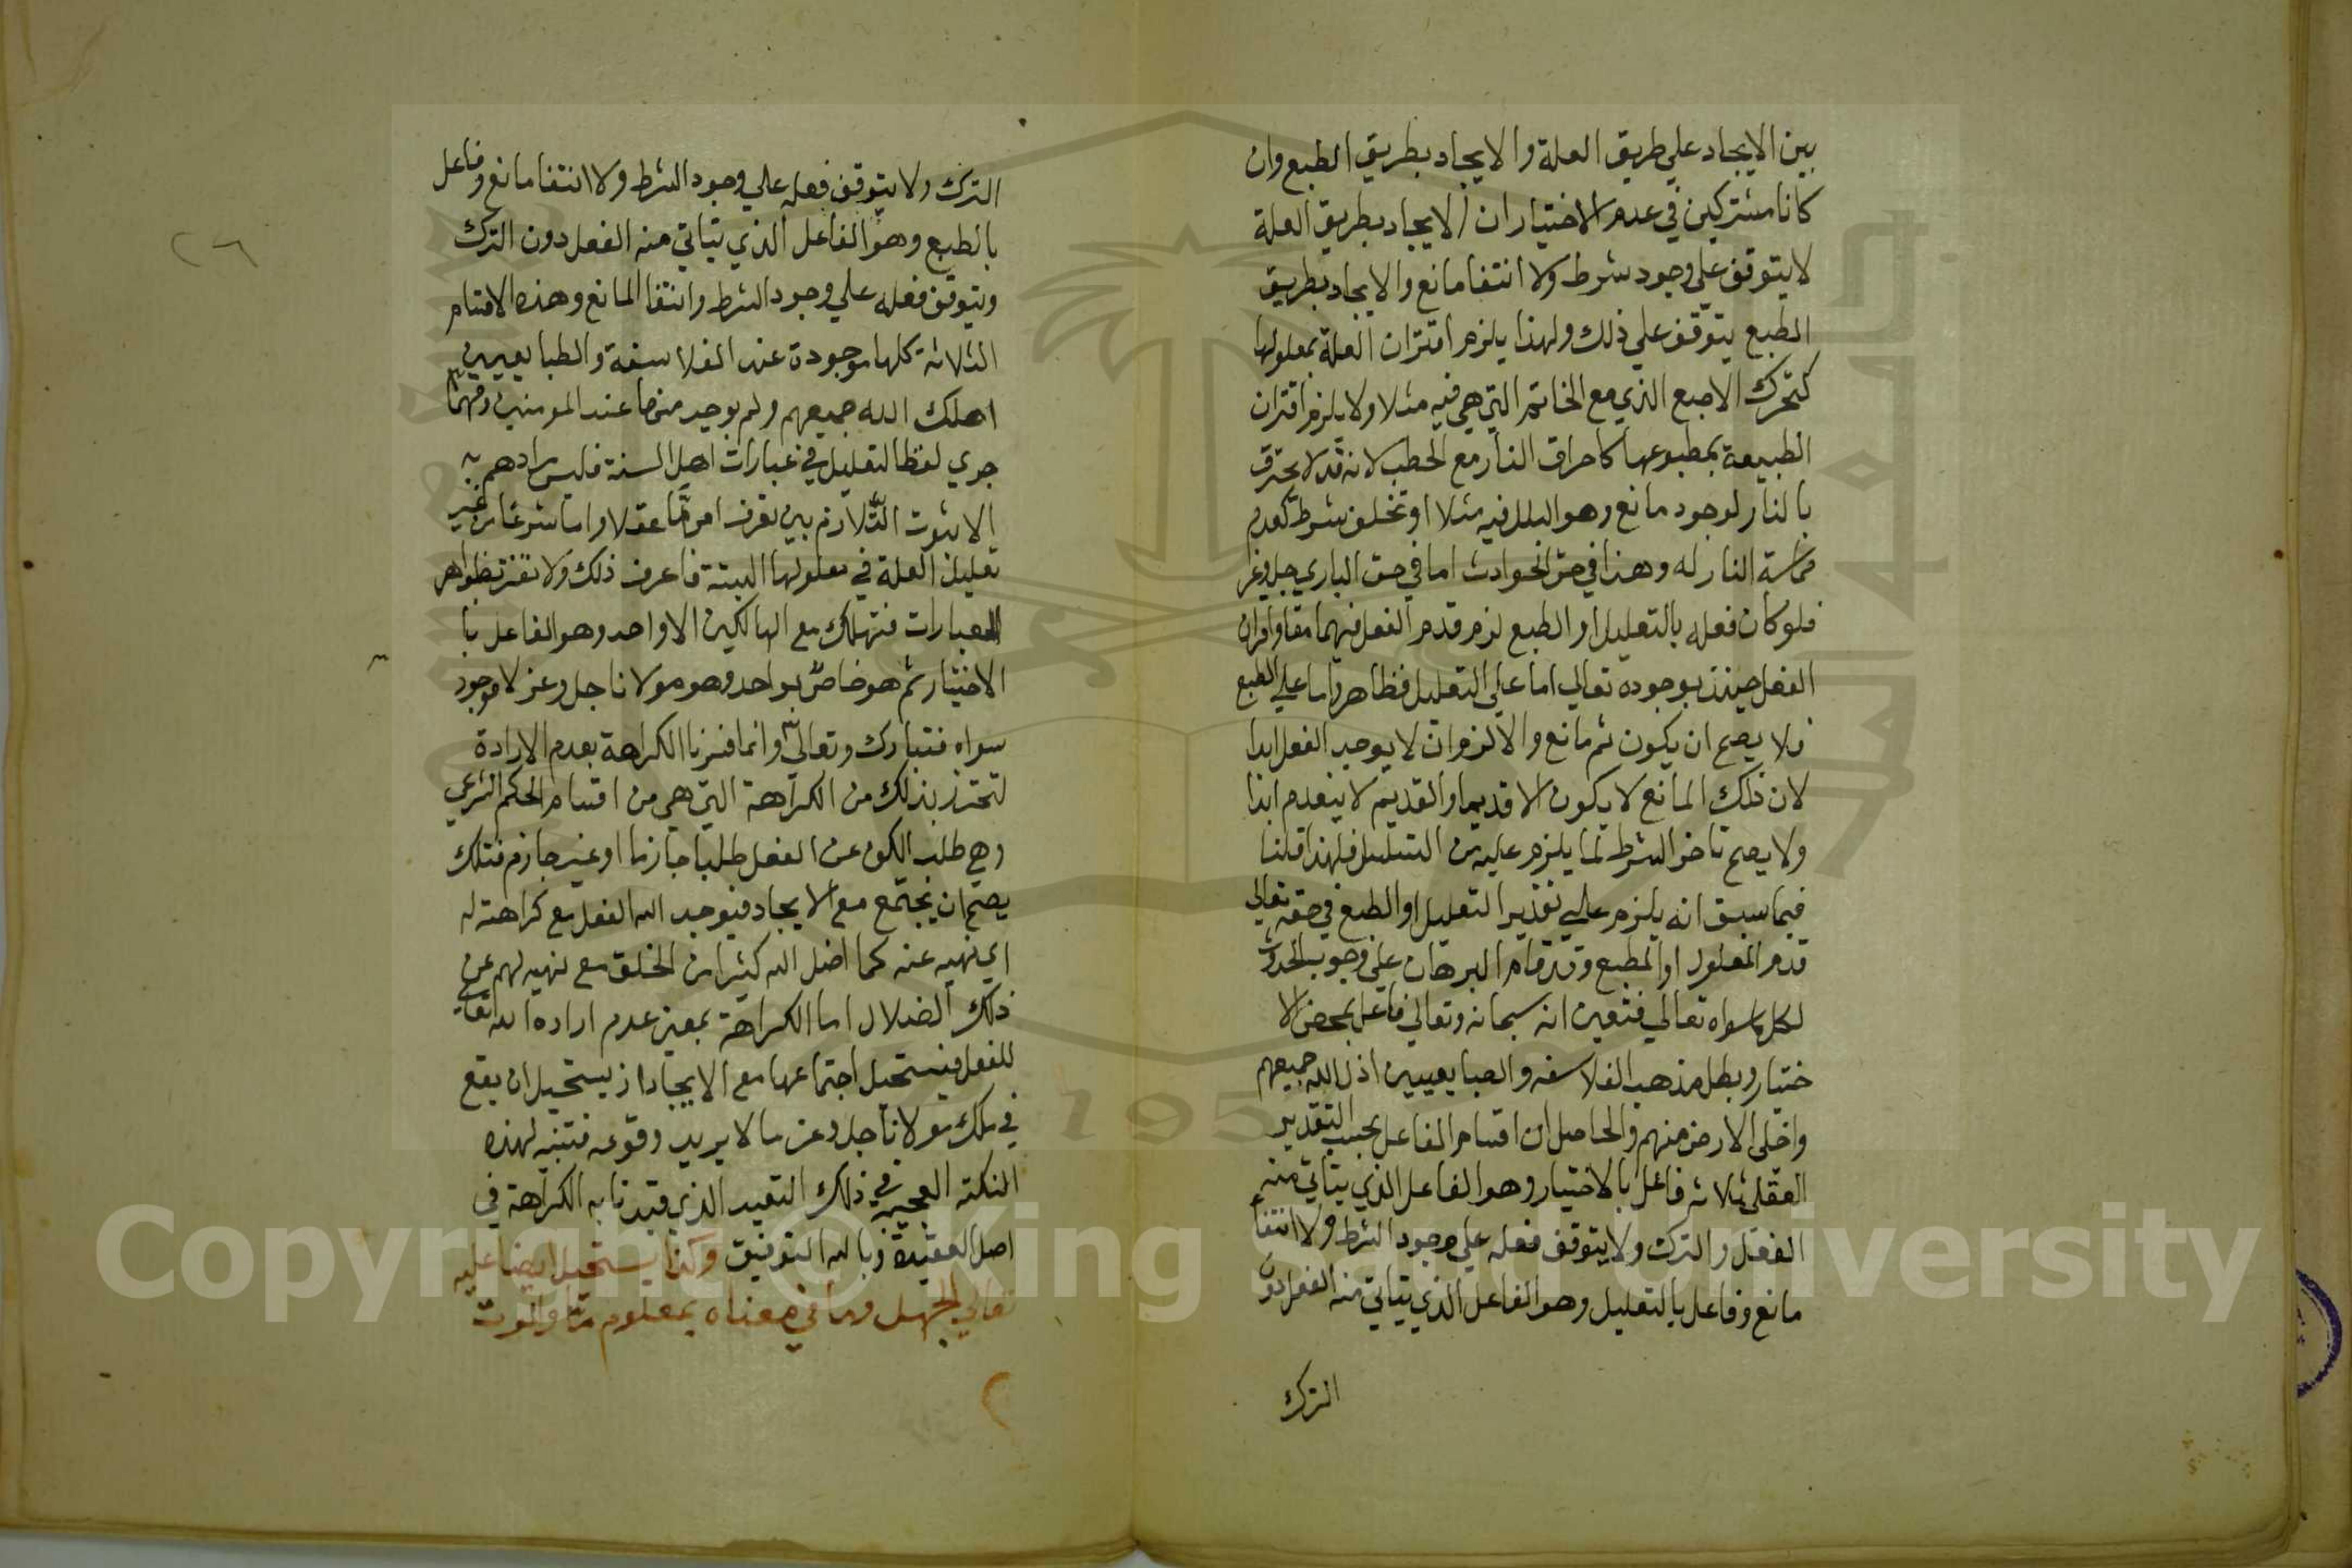 بين الايجاد علي طريق العلة والايجاد بطريق الطبع وان
كانا مشتركين في عدم الاختيار ان الايجاد بطريق العلة
لا يتوقف علي وجود شرط ولا انتفا مانع والايجاد بطريق
الطبع يتوقف علي ذلك ولهذا يلزم اقتران العلة بمعلولها
كتحرك الاصبع الذي مع الخاتم التي هي فيه مثلا ولا يلزم اقتران
الطبيعة بمطبوعها كاحراق النار مع الحطب لانه قد لا يحترق
بالنار لوجود مانع وهو البلل فيه مثلا او تخلف شرط كعدم
مماسة النار له وهذا في حق الحوادث اما في حق الباري جل وعز
فلو كان فعله بالتعليل او الطبع لزم قدم الفعل فيهما معا واقران
الفعل حينئذ بوجوده تعالي اما علي التعليل فظاهر واما علي الطبع
فلا يصح ان يكون ثم مانع والا لزم ان لا يوجد الفعل ابدا
لان ذلك المانع لا يكون الا قديما والقديم لا ينعدم ابدا
ولا يصح تاخر الشرط لما يلزم عليه من التسلسل فلهذا قلنا
فيما سبق انه يلزم علي تقدير التعليل او الطبع في حقه تعالي
قدم المعلول او المطبع وقد قام البرهان علي وجوب الحدوث
لكل ما سواه تعالي فتعين انه سبحانه وتعالي فاعل بمحض الا
ختيار وبطل مذهب الفلاسفه والطبايعيين اذل الله جميعهم
واخلي الارض منهم والحاصل ان اقسام الفاعل بحسب التقدير
العقلي ثلاثه فاعل بالاختيار وهو الفاعل الذي يتاتي منه
الفعل والترك ولا يتوقف فعله علي وجود الشرط ولا انتفا
مانع وفاعل بالتعليل وهو الفاعل الذي يتاتي منه الفعل دون
الترك
٢٦
الترك ولا يتوقف فعله علي وجود الشرط ولا انتفا مانع وفاعل
بالطبع وهو الفاعل الذي يتاتي منه الفعل دون الترك
ويتوقف فعله علي وجود الشرط وانتفا المانع وهذه الاقسام
الثلاثة كلها موجودة عند الفلاسفة والطبايعيين
اهلك الله جميعهم ولم يوجد منها عند المومنين ومهما
جري لفظ التعليل في عبارات اهل السنة فليس مرادهم به
الا ثبوت التلازم بين امر ما عقلا واما شرعا من غير
تعليل العلة في معلولها البتة فاعرف ذلك ولا تغتر بظواهر
العبارات فتهلك مع الهالكين الا واحد وهو الفاعل با
الاختيار ثم هو خاص بواحد وهو مولانا جل وعز لا موجود
سواه فتبارك وتعالي وانما فسرنا الكراهة بعدم الارادة
لتحترز بذلك من الكراهة التي هي من اقسام الحكم الشرعي
وهي طلب الكف عن الفعل طلبا جازما او غير جازم فتلك
يصح ان يجتمع مع الايجاد فيوجد الله الفعل مع كراهته له
اي نهيه عنه كما اضل الله كثيرا من الخلق مع نهيه لهم عن
ذلك الضلال اما الكراهة بمعني عدم اراده الله تعالي
للفعل فيستحيل اجتماعها مع الايجاد اذ يستحيل ان يقع
في ملك مولانا جل وعز ما لا يريد وقوعه فتنبه لهذه
النكته العجيبة في ذلك التقييد الذي قيدنا به الكراهة في
اصل العقيدة وبالله التوفيق وكذا يستحيل ايضا عليه
تعالي الجهل وما في معناه بمعلوم ما والموت
Copyright © King Saud University
195